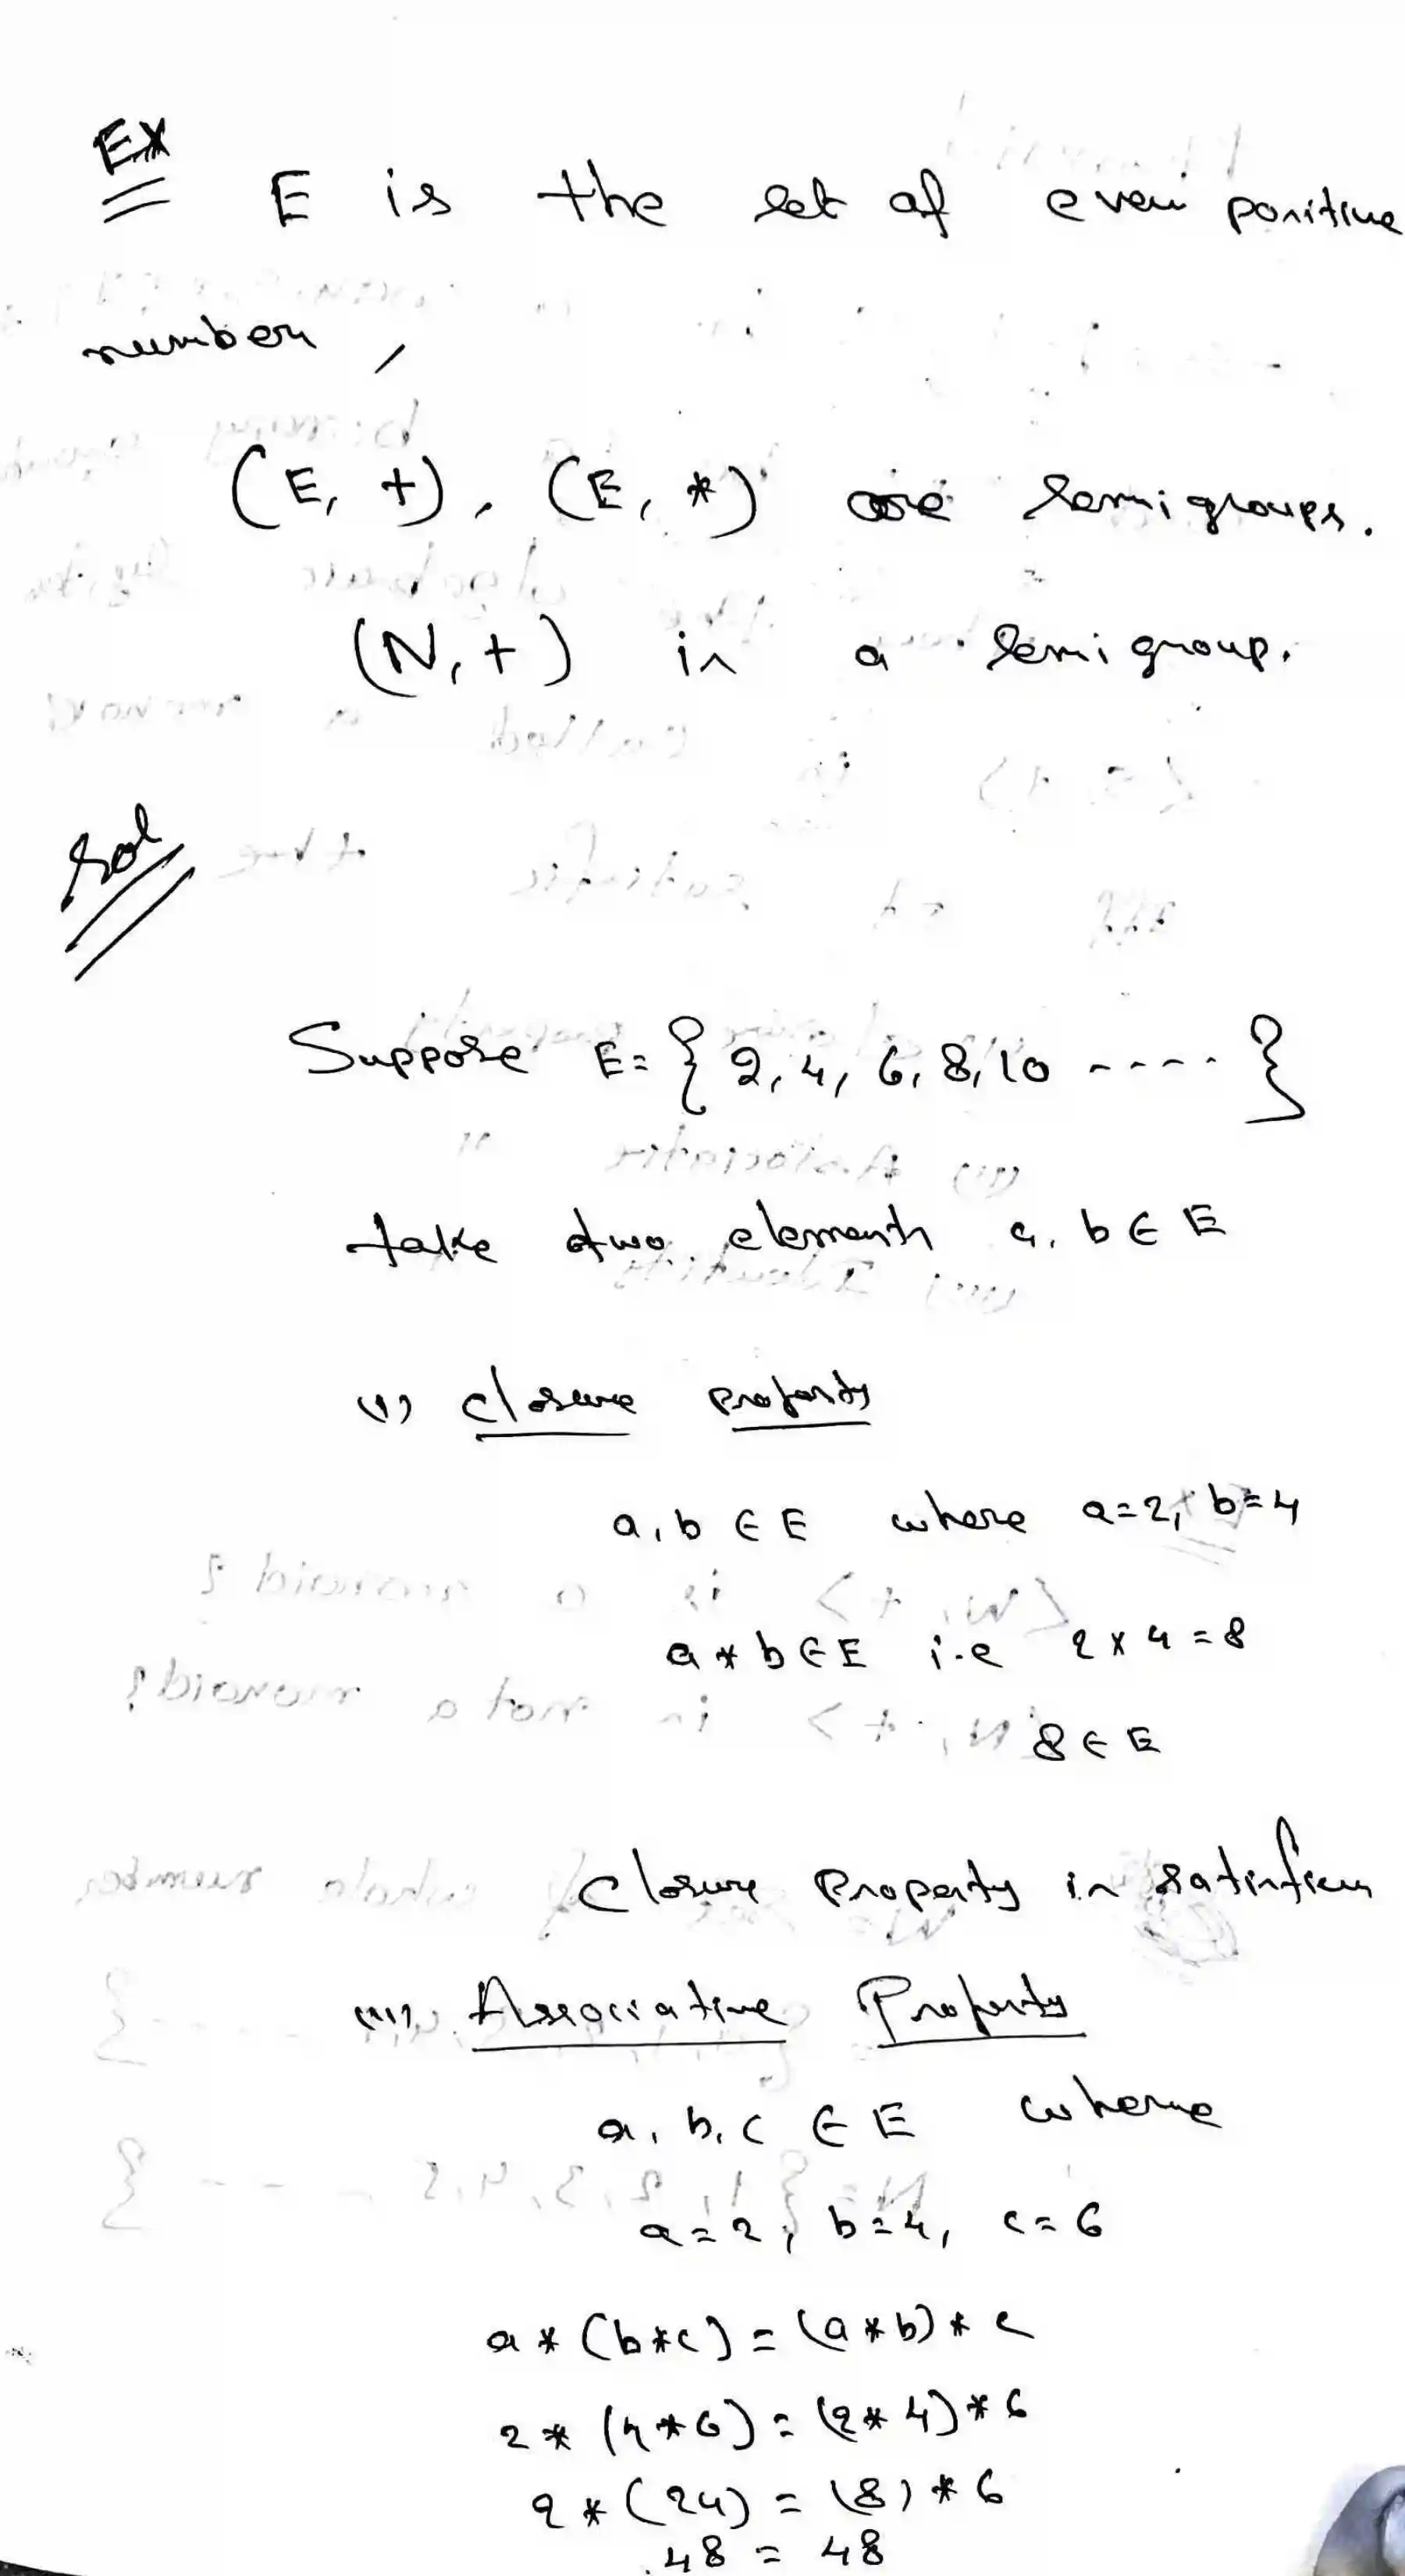 Ex
E is the set of even positive
number,
(E, +), (E, *) are semigroups.
(N, +) is a semigroup.
Sol
Suppose E = { 2, 4, 6, 8, 10 ----- }
take two elements a, b ∈ E
(i) closure property
a, b ∈ E where a=2, b=4
a * b ∈ E i.e 2 x 4 = 8
8 ∈ E
Closure Property is satisfies
(ii) Associative Property
a, b, c ∈ E where
a = 2, b = 4, c = 6
a * (b*c) = (a*b) * c
2 * (4*6) = (2*4) * 6
2 * (24) = (8) * 6
48 = 48